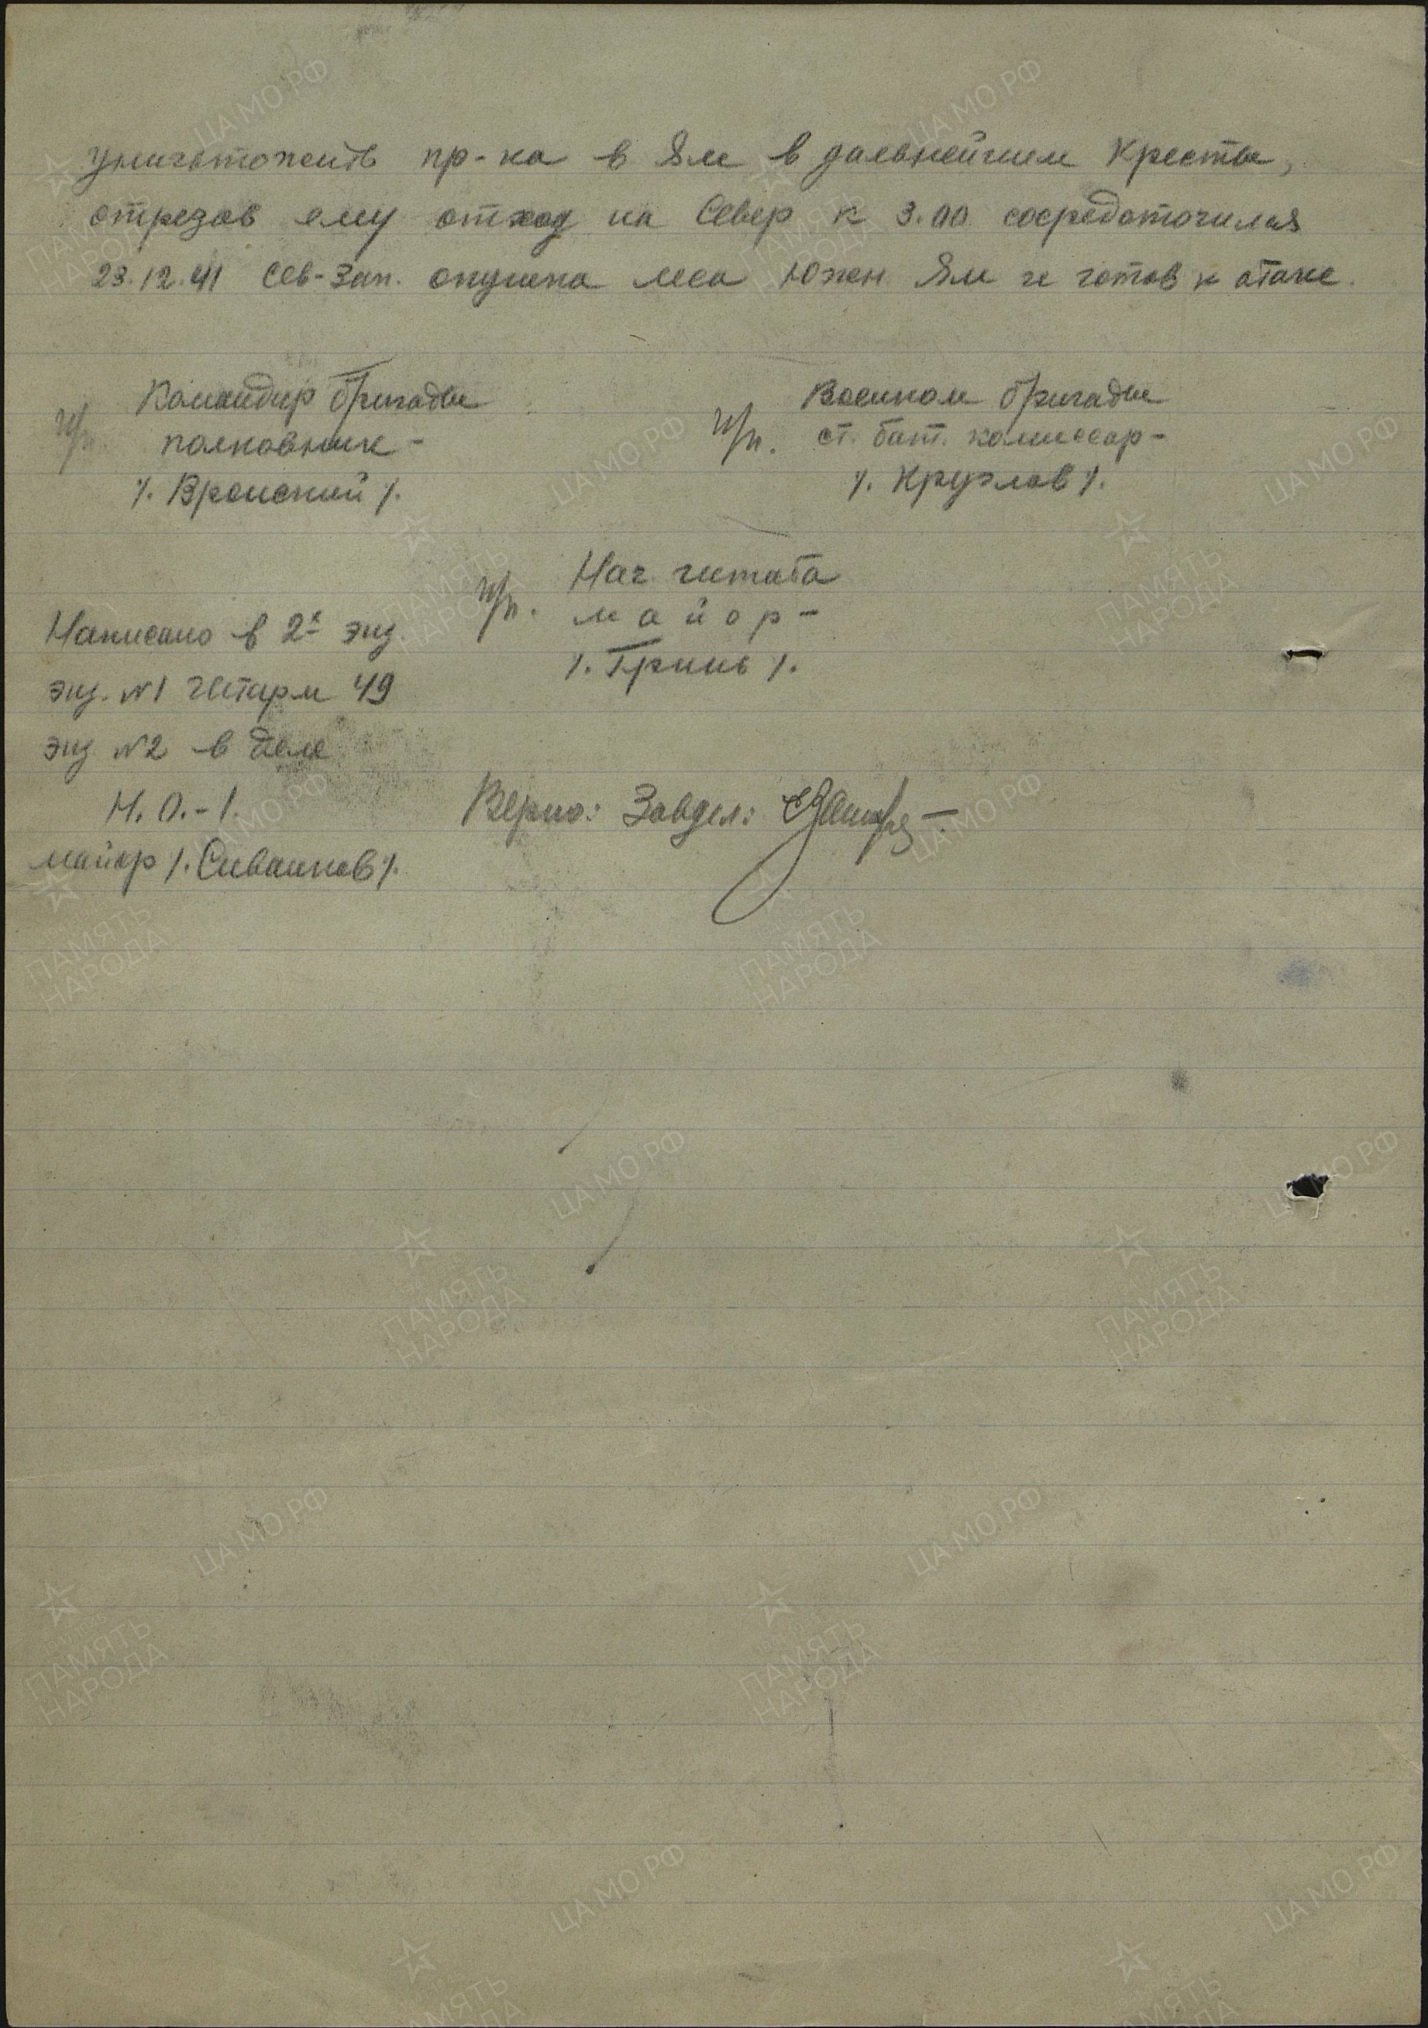 уничтожить пр-ка в Ям в дальнейшем Кресты,
отрезав ему отход на Север к 3.00 сосредоточился
23.12.41 Сев-Зап. опушка леса Южн Ям и готов к атаке.
Командир бригады
п/п. полковник -
/. Вронский /.
Военком бригады
п/п. ст. бат. комиссар -
/. Круглов /.
Нач. штаба
п/п. майор -
/. Гринь /.
Написано в 2х экз.
экз. №1 Штарм 49
экз №2 в деле
Н.О.-1.
майор /. Сиванков /.
Верно: Завдел:
ЦА МО РФ
ПАМЯТЬ
НАРОДА